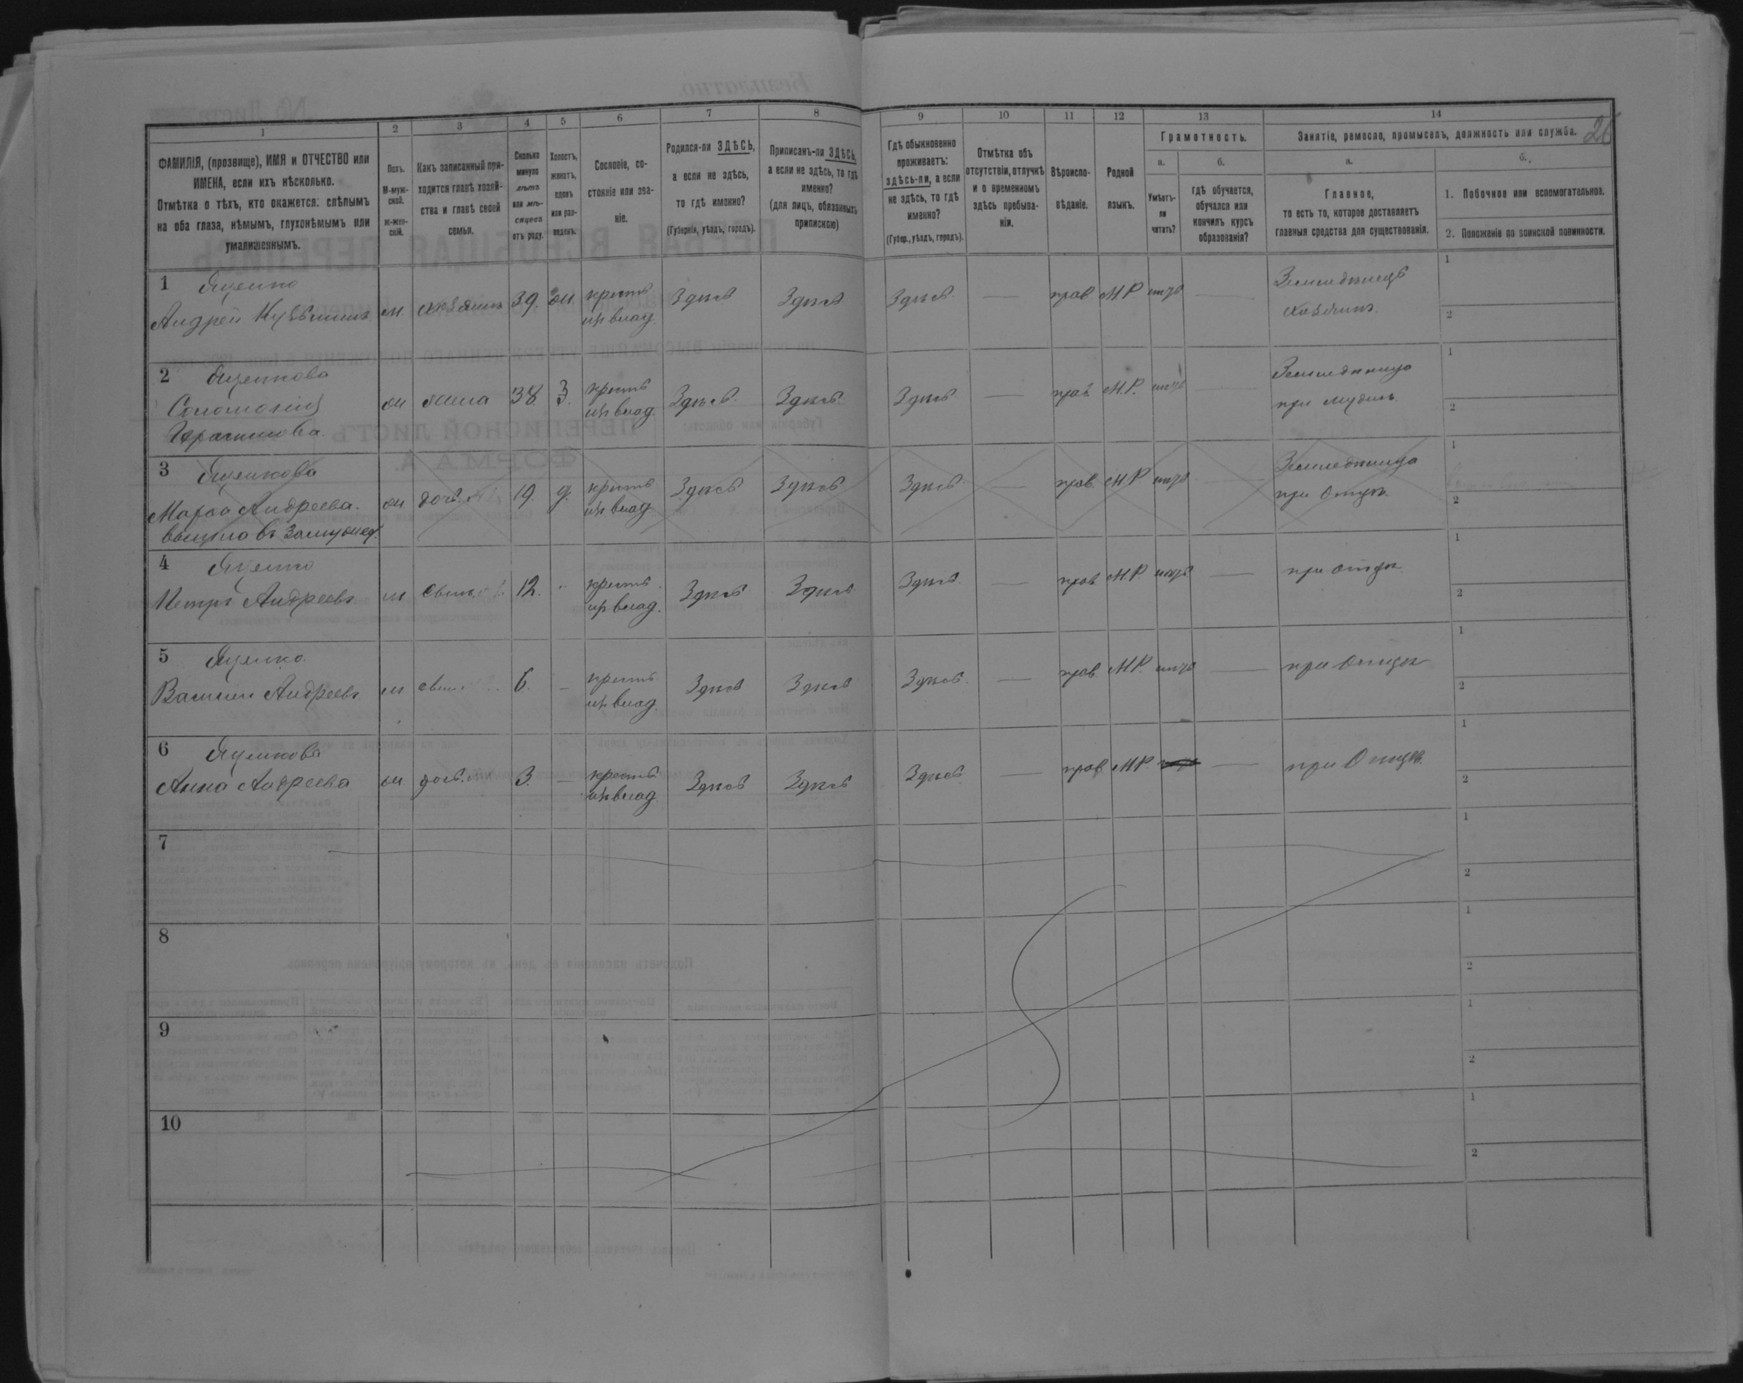 26
1
2
3
4
5
6
7
8
9
10
11
12
13
14
ФАМИЛІЯ, (прозвище), ИМЯ и ОТЧЕСТВО или
ИМЕНА, если ихъ нѣсколько.
Отмѣтка о тѣхъ, кто окажется: слѣпымъ
на оба глаза, нѣмымъ, глухонѣмымъ или
умалишеннымъ.
Полъ.
М-муж-
ской.
Ж-жен-
скій.
Какъ записанный при-
ходится главѣ хозяй-
ства и главѣ своей
семьи.
Сколько
минуло
лѣтъ
или мѣ-
сяцевъ
отъ роду.
Холостъ,
женатъ,
вдовъ
или раз-
веденъ.
Сословіе, со-
стояніе или зва-
ніе.
Родился-ли ЗДѢСЬ,
а если не здѣсь,
то гдѣ именно?
(Губернія, уѣздъ, городъ).
Приписанъ-ли ЗДѢСЬ,
а если не здѣсь, то гдѣ
именно?
(для лицъ, обязанныхъ
припискою)
Гдѣ обыкновенно
проживаетъ:
здѣсь-ли, а если
не здѣсь, то гдѣ
именно?
(Губер., уѣздъ, городъ).
Отмѣтка объ
отсутствіи, отлучкѣ
и о временномъ
здѣсь пребыва-
ніи.
Вѣроиспо-
вѣданіе.
Родной
языкъ.
Грамотность.
а.
Умѣетъ-
ли
читать?
б.
гдѣ обучается,
обучался или
кончилъ курсъ
образованія?
Занятіе, ремесло, промыселъ, должность или служба.
а.
Главное,
то есть то, которое доставляетъ
главныя средства для существованія.
б.
1. Побочное или вспомогательное.
2. Положеніе по воинской повинности.
1 Яценко
Андрей Кузьминъ м. хозяинъ 39. крест. Здѣсь Здѣсь Здѣсь — прав М.Р. — Земледѣлецъ
хозяинъ
1
2
2 Яценкова
Соломонія ж жена 38 З. крест. Здѣсь Здѣсь Здѣсь — прав М.Р. — Земледѣлица
Герасимова при мужѣ
1
2
3 Яценкова
Марфа Андреева ж дочь 19. д. крест. Здѣсь Здѣсь Здѣсь — прав М.Р. — Земледѣлица
вышла въ замужество при отцѣ
1
2
4 Яценко
Петръ Андреевъ м сынъ 12. крест. Здѣсь Здѣсь Здѣсь — прав М.Р. — при отцѣ
1
2
5 Яценко
Василій Андреевъ м сынъ 6. — крест. Здѣсь Здѣсь Здѣсь — прав М.Р. — при отцѣ
1
2
6 Яценкова
Анна Андреева ж дочь 3. — крест. Здѣсь Здѣсь Здѣсь — прав М.Р. — при Отцѣ
1
2
7
1
2
8
1
2
9
1
2
10
1
2